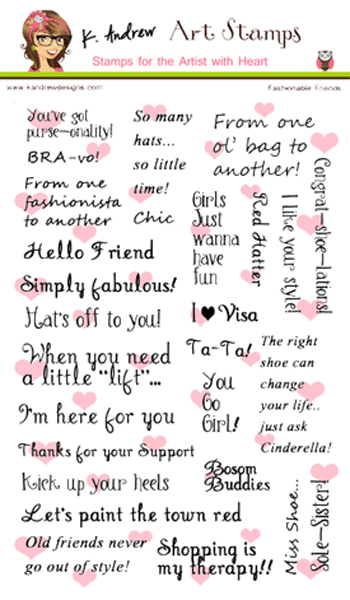 K. Andrew Art Stamps
Stamps for the Artist with Heart
www.kandrewdesigns.com
Fashionable Friends
You've got
purse-onality!
BRA-vo!
From one
fashionista
to another
So many
hats...
so little
time!
Chic
From one
ol' bag to
another!
Congrat-shoe-lations!
I like your style!
Red Hatter
Girls
Just
wanna
have
fun
Hello Friend
Simply fabulous!
Hat's off to you!
I ♥ Visa
When you need
a little "lift"...
Ta-Ta!
The right
shoe can
change
your life..
just ask
Cinderella!
You
Go
Girl!
I'm here for you
Thanks for your Support
Kick up your heels
Bosom
Buddies
Let's paint the town red
Miss Shoe...
Sole-Sister!
Old friends never
go out of style!
Shopping is
my therapy!!